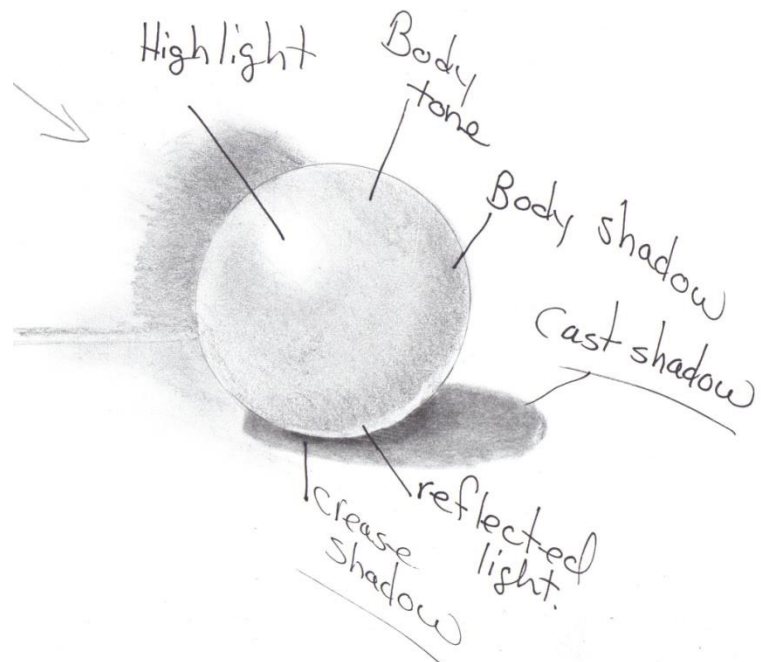 Highlight
Body
tone
Body shadow
Cast shadow
reflected
light.
crease
shadow